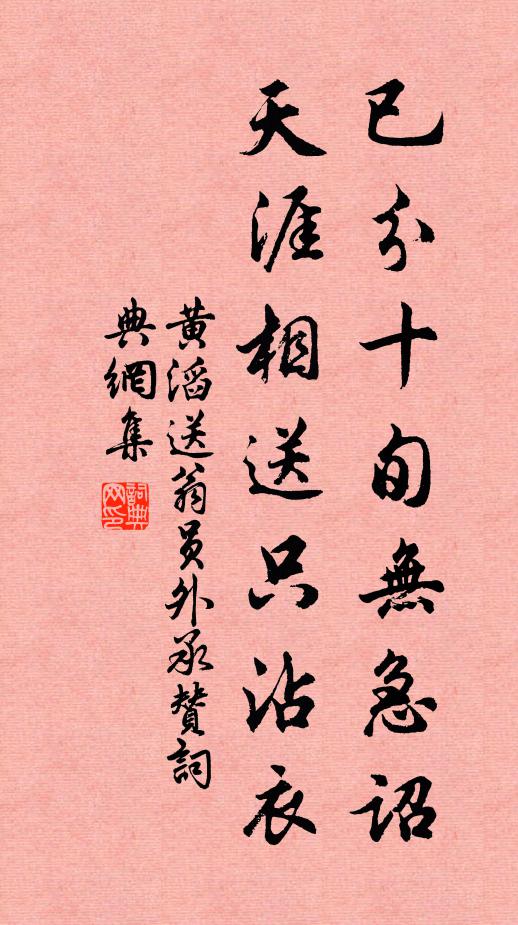 已分十旬無急詔
天涯相送只沾衣
黄滔送翁員外承贊詞
典網集
詞典
网印